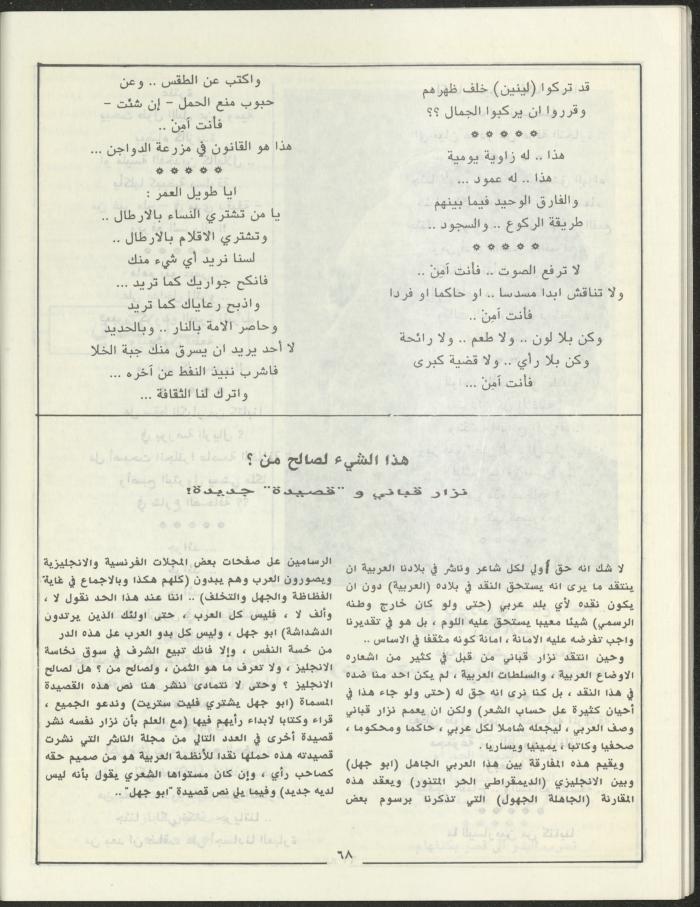 قد تركوا (لينين) خلف ظهرهم
وقرروا ان يركبوا الجمال ؟؟
* * * * *
هذا .. له زاوية يومية
هذا .. له عمود ...
والفارق الوحيد فيما بينهم
طريقة الركوع .. والسجود ..
* * * * *
لا ترفع الصوت .. فأنت آمِنْ ..
ولا تناقش ابدا مسدسا .. او حاكما او فردا
فأنت آمِنْ ..
وكن بلا لون .. ولا طعم .. ولا رائحة
وكن بلا رأي .. ولا قضية كبرى
فأنت آمِنْ ...
واكتب عن الطقس .. وعن
حبوب منع الحمل - إن شئت -
فأنت آمِنْ ..
هذا هو القانون في مزرعة الدواجن ...
* * * * *
ايا طويل العمر :
يا من تشتري النساء بالارطال ..
وتشتري الاقلام بالارطال ..
لسنا نريد أي شيء منك
فانكح جواريك كما تريد ...
واذبح رعاياك كما تريد
وحاصر الامة بالنار .. وبالحديد
لا أحد يريد ان يسرق منك جبة الخلا
فاشرب نبيذ النفط عن آخره ...
واترك لنا الثقافة ...
هذا الشيء لصالح من ؟
نزار قباني و "قصيدة" جديدة!
لا شك انه حق أولي لكل شاعر وناشر في بلادنا العربية ان
ينتقد ما يرى انه يستحق النقد في بلاده (العربية) دون ان
يكون نقده لأي بلد عربي (حتى ولو كان خارج وطنه
الرسمي) شيئا معيبا يستحق عليه اللوم ، بل هو في تقديرنا
واجب تفرضه عليه الامانة ، امانة كونه مثقفا في الاساس ..
وحين انتقد نزار قباني من قبل في كثير من اشعاره
الاوضاع العربية ، والسلطات العربية ، لم يكن احد منا ضده
في هذا النقد ، بل كنا نرى انه حق له (حتى ولو جاء هذا في
أحيان كثيرة على حساب الشعر) ولكن ان يعمم نزار قباني
وصف العربي ، ليجعله شاملا لكل عربي ، حاكما ومحكوما ،
صحفيا وكاتبا ، يمينيا ويساريا .
ويقيم هذه المفارقة بين هذا العربي الجاهل (ابو جهل)
وبين الانجليزي (الديمقراطي الحر المتنور) ويعقد هذه
المقارنة (الجاهلة الجهول) التي تذكرنا برسوم بعض
الرسامين على صفحات بعض المجلات الفرنسية والانجليزية
ويصورون العرب وهم يبدون (كلهم هكذا وبالاجماع في غاية
الفظاظة والجهل والتخلف) .. اننا عند هذا الحد نقول لا ،
وألف لا ، فليس كل العرب ، حتى اولئك الذين يرتدون
الدشداشة) ابو جهل ، وليس كل بدو العرب على هذه الدر
من خسة النفس ، وإلا فانك تبيع الشرف في سوق نخاسة
الانجليز ، ولا تعرف ما هو الثمن ، ولصالح من ؟ هل لصالح
الانجليز ؟ وحتى لا نتمادى ننشر هنا نص هذه القصيدة
المسماة (ابو جهل يشتري فليت ستريت) وندعو الجميع ،
قراء وكتابا لابداء رأيهم فيها (مع العلم بأن نزار نفسه نشر
قصيدة أخرى في العدد التالي من مجلة الناشر التي نشرت
قصيدته هذه حملها نقدا للأنظمة العربية هو من صميم حقه
كصاحب رأي ، وإن كان مستواها الشعري يقول بأنه ليس
لديه جديد) وفيما يلي نص قصيدة "ابو جهل" ..
٦٨